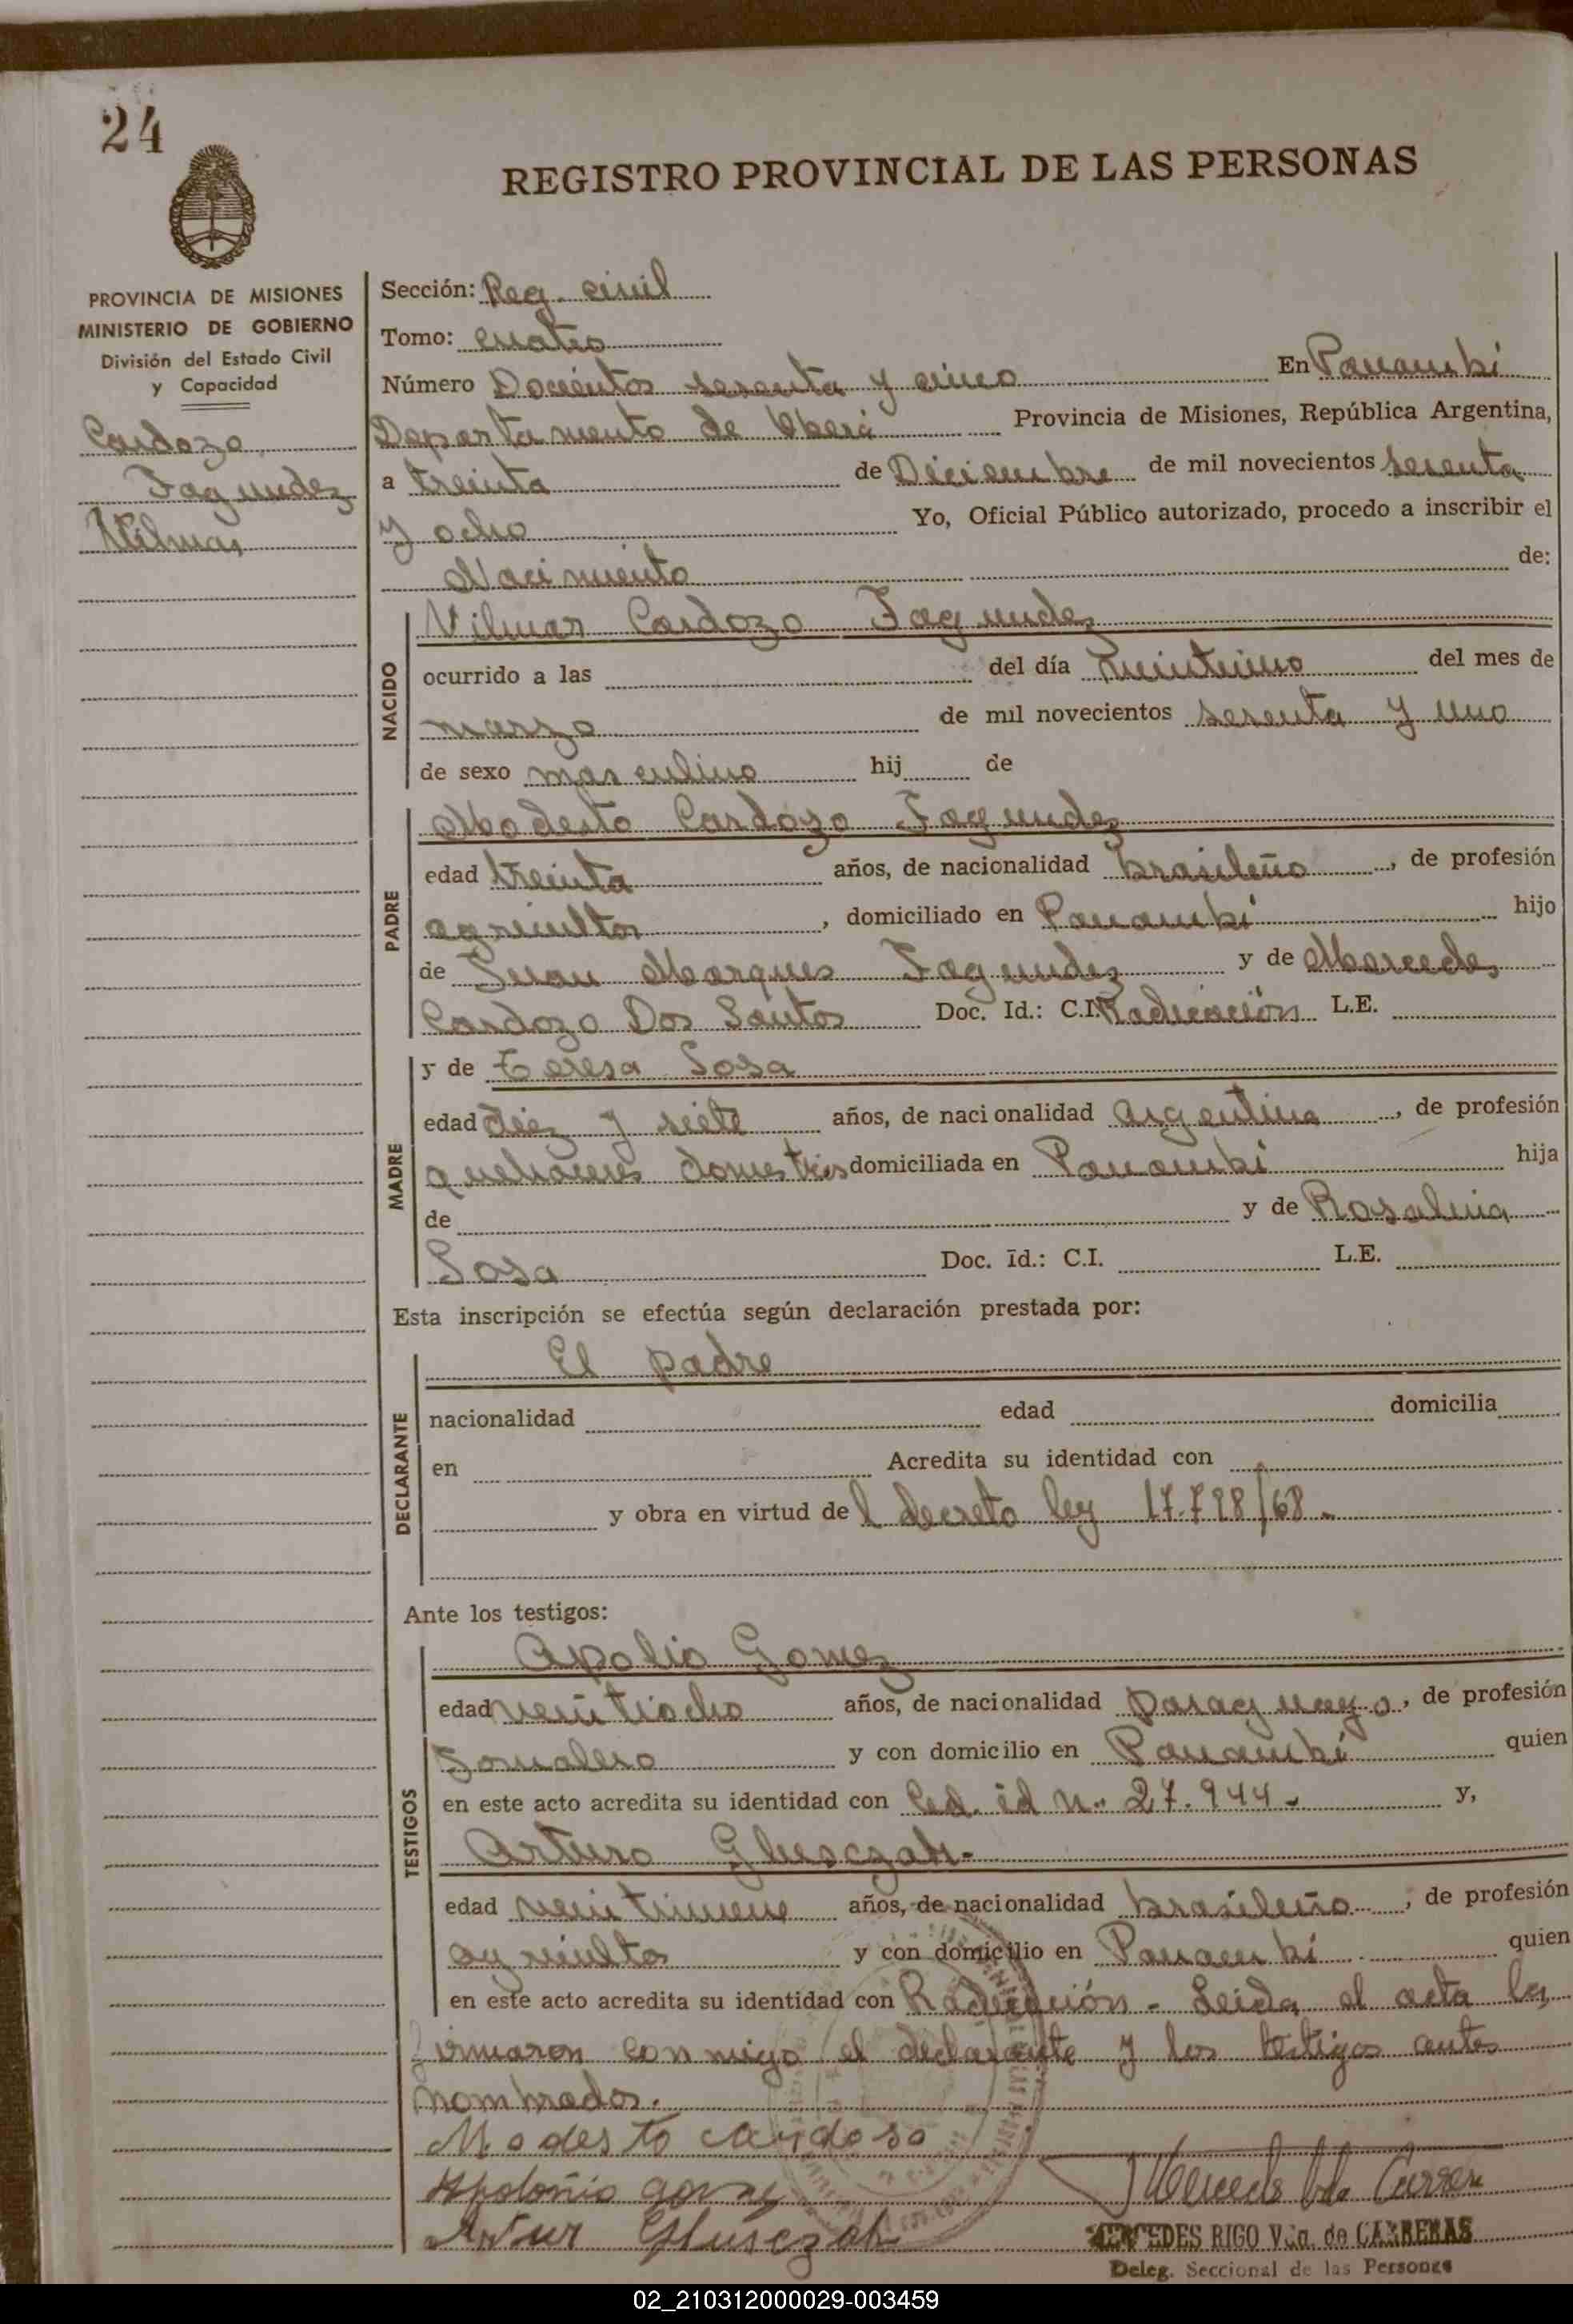 24
REGISTRO PROVINCIAL DE LAS PERSONAS
PROVINCIA DE MISIONES
MINISTERIO DE GOBIERNO
División del Estado Civil
y Capacidad
Cardozo
Fagundez
Vilmar
Sección: Reg. civil
Tomo: cuatro
Número Docientos sesenta y cinco En Panambí
Departamento de Oberá Provincia de Misiones, República Argentina,
a treinta de Diciembre de mil novecientos sesenta
y ocho Yo, Oficial Público autorizado, procedo a inscribir el
Nacimiento de:
NACIDO
Vilmar Cardozo Fagundez
ocurrido a las del día del mes de
marzo de mil novecientos sesenta y uno
de sexo masculino hij de
PADRE
Modesto Cardozo Fagundez
edad treinta años, de nacionalidad brasileño, de profesión
agricultor, domiciliado en Panambí hijo
de Juan Marques Fagundez y de Mercedes
Cardozo Dos Santos Doc. Id.: C.I. Radicación L.E.
MADRE
y de Teresa Sosa
edad diez y siete años, de nacionalidad argentina, de profesión
quehaceres domiciliada en Panambí hija
de y de Rosalina
Sosa Doc. Id.: C.I. L.E.
Esta inscripción se efectúa según declaración prestada por:
DECLARANTE
El padre
nacionalidad edad domicilia
en Acredita su identidad con
y obra en virtud del decreto ley 17.728/68.-
Ante los testigos:
TESTIGOS
Apolio Gomez
edad veintiocho años, de nacionalidad paraguayo, de profesión
Jornalero y con domicilio en Panambí quien
en este acto acredita su identidad con Ced. id n.. 27.944.- y,
Arturo Glusczak.-
edad años, de nacionalidad brasileño, de profesión
agricultor y con domicilio en Panambí quien
en este acto acredita su identidad con Radicación - Leida el acta la
firmaron conmigo el declarante y los testigos antes
nombrados.
Modesto cardoso
Apolonio gomez
Artur Glusczak
MERCEDES RIGO Vda. de CARRERAS
Deleg. Seccional de las Personas
02_210312000029-003459